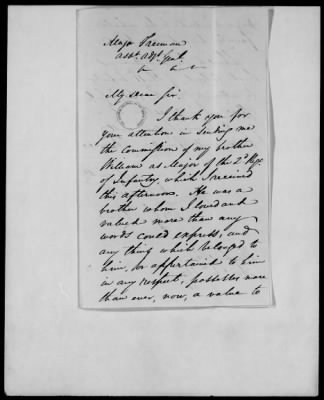 Major Freeman
Asst. Adjt. Genl.
My Dear Sir.
I thank you for
your attention in sending me
the commission of my brother
William as Major of the 2d Regt
of Infantry, which I received
this afternoon. He was a
brother whom I loved and
valued more than any
words could express, and
any thing which belonged to
him, or appertained to him
in any respect, possesses more
than ever, now, a value to